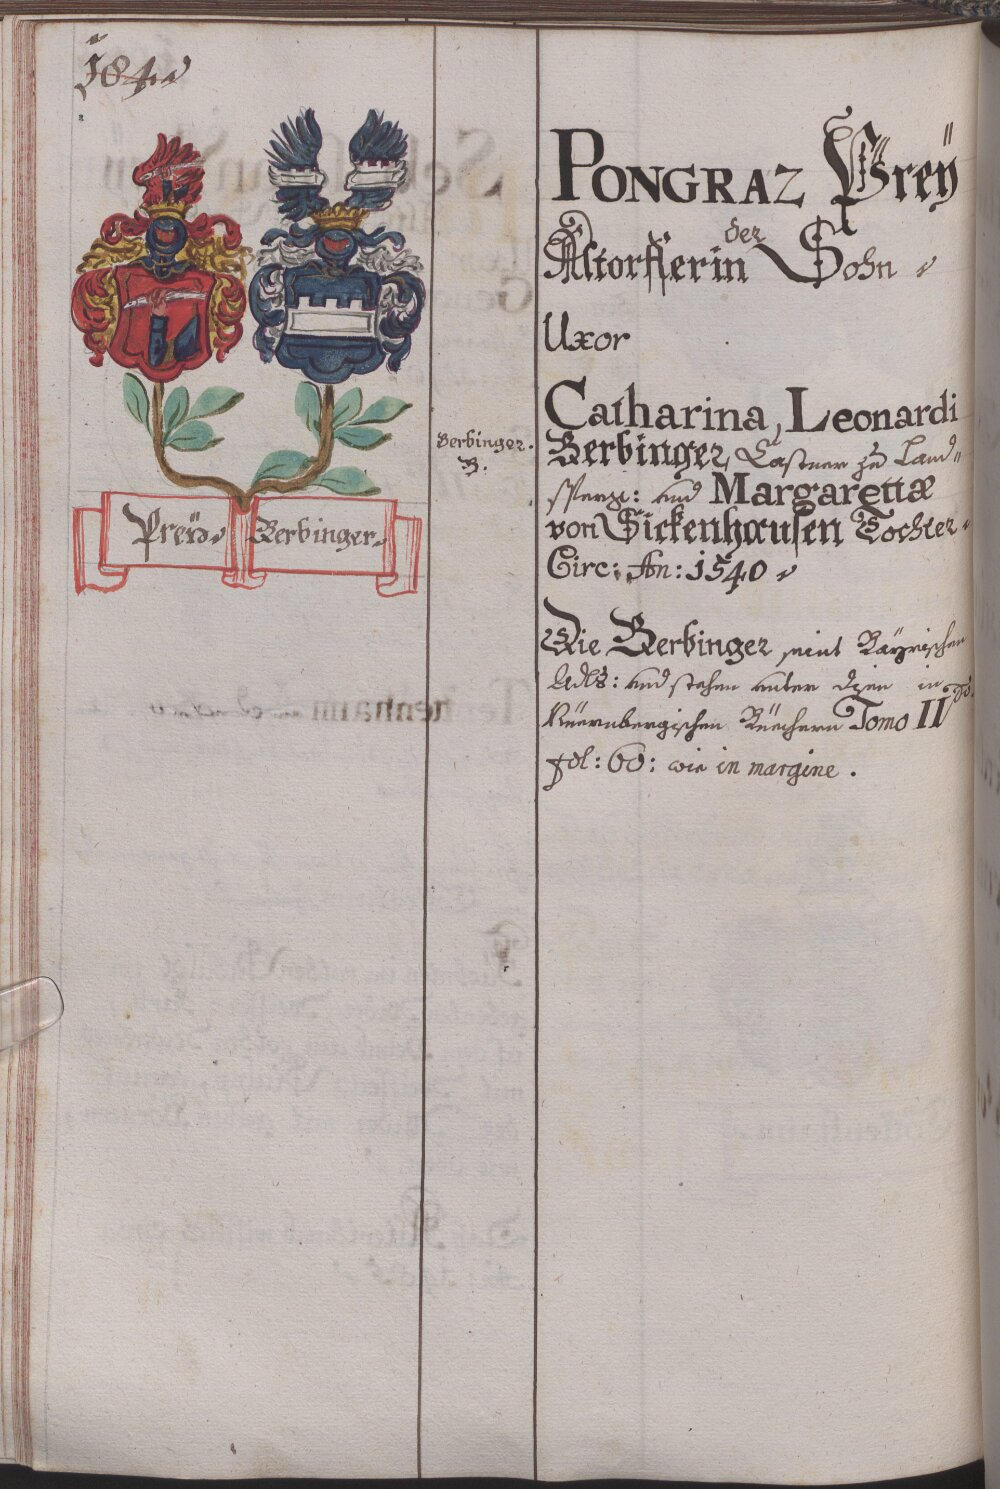 184
PONGRAZ Preÿ
der
Altorfferin Sohn
Uxor
Catharina, Leonardi
Berbinger, Castner zu Land"
sperg: und Margarettæ
von Sickenhausen Tochter
Circ: An: 1540
Berbinger.
B.
Preÿ
Berbinger
Die Berbinger seint Bäyrischen
Adls: und stehen unter den in
Nüernbergischen Büechern Tomo II
fol: 60: wie in margine.